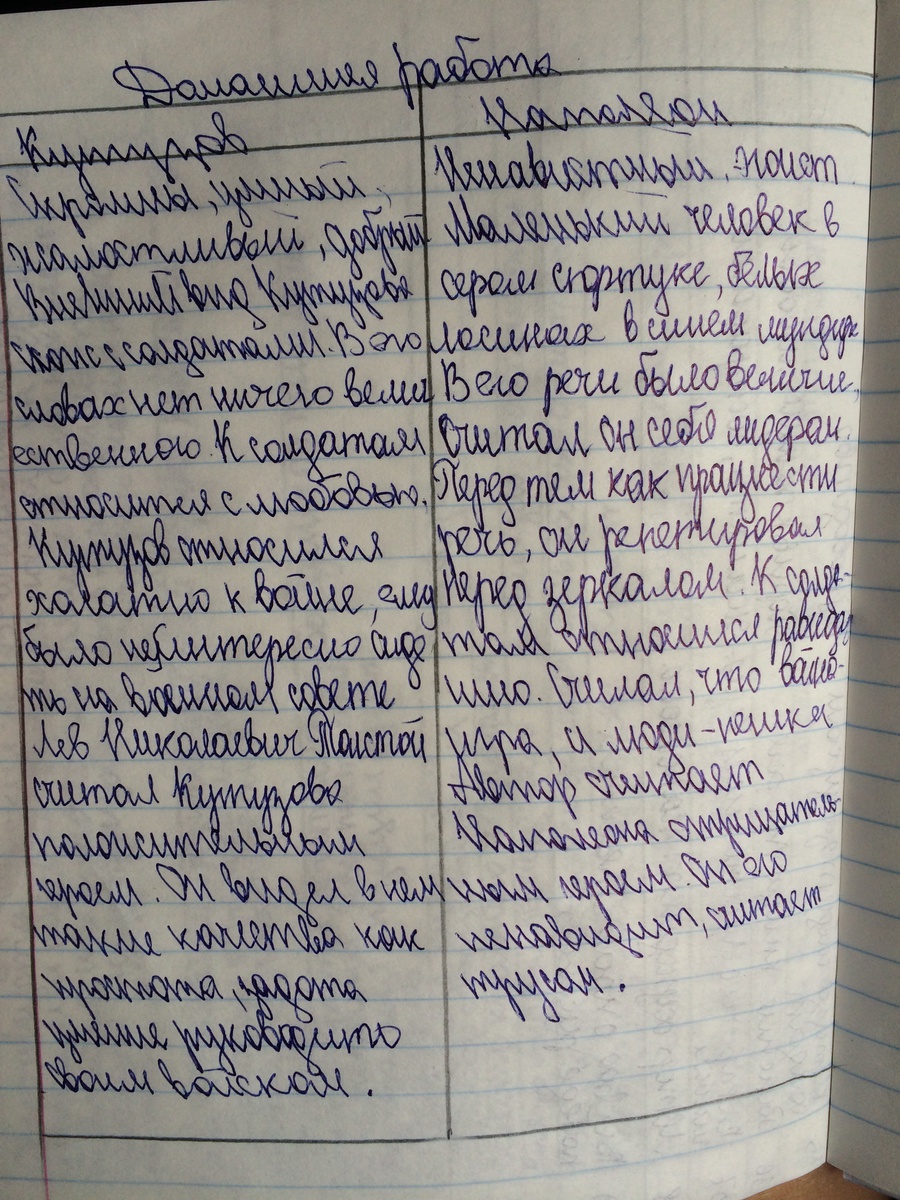 Домашняя работа
Кутузов
Скромны, умный,
жалостливый, добрый
Внешний вид Кутузова
схож с солдатами. В его
словах нет ничего велич
ественного. К солдатам
относится с любовью.
Кутузов относился
халатно к войне, ему
было не интересно сиде
ть на военном совете
Лев Николаевич Толстой
считал Кутузова
положительным
героем. Он видел в нем
такие качества как
простота,
умение руководить
своим войском.
Наполеон
Ненавистный. эгоист.
Маленький человек в
сером сюртуке, белых
лосинах в синем мундире
В его речи было величие,
Считал он себя лидером.
Перед тем как произнести
речь, он репетировал
перед зеркалом. К солда-
там относился равнодуш
но. Считал, что война-
игра, а люди-пешки
Автор считает
Наполеона отрицатель-
ным героем. Он его
ненавидит, считает
трусом.